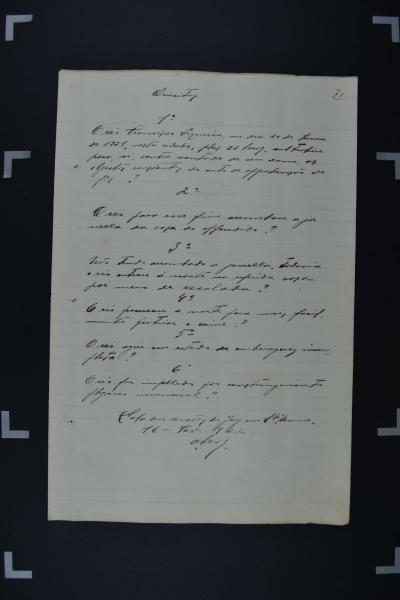 Quesitos
71
1º
O réo Francisco Siqueira, no dia 20 de Junho
de 1921, nesta cidade, pelas 22 horas, subtrahiu
para si, contra vontade de seu dono, os
objectos constantes do auto de apprehensão de
fls ?
2º
O réo para esse fim arrombou a ja-
nella da casa do offendido ?
3º
Não tendo arrombado a janella, todavia
o réo entrou á noite na referida casa
por meio de escalada ?
4º
O réo procurou a noite para mais facil-
mente praticar o crime ?
5º
O réo agiu em estado de embriaguez incom-
pleta ?
6º
O réo foi impellido por constrangimento
physico
Sala das sessões do Jury em
16 - Fev.